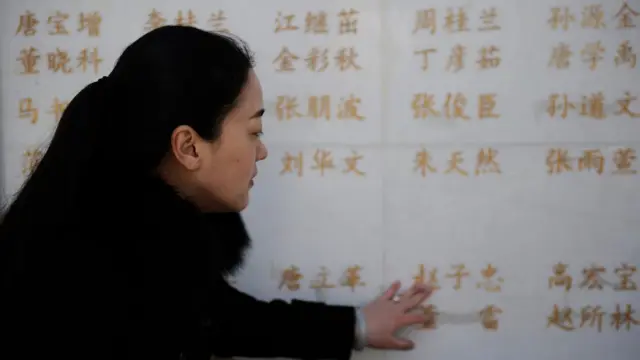 唐宝增 李桂兰 江继茁 周桂兰 孙源
董晓科 金彩秋 丁彦茹 唐学禹
马 张朋波 张俊臣 孙道文
刘华文 朱天然 张雨萱
唐立革 赵子忠 高宏宝
雷 赵所林